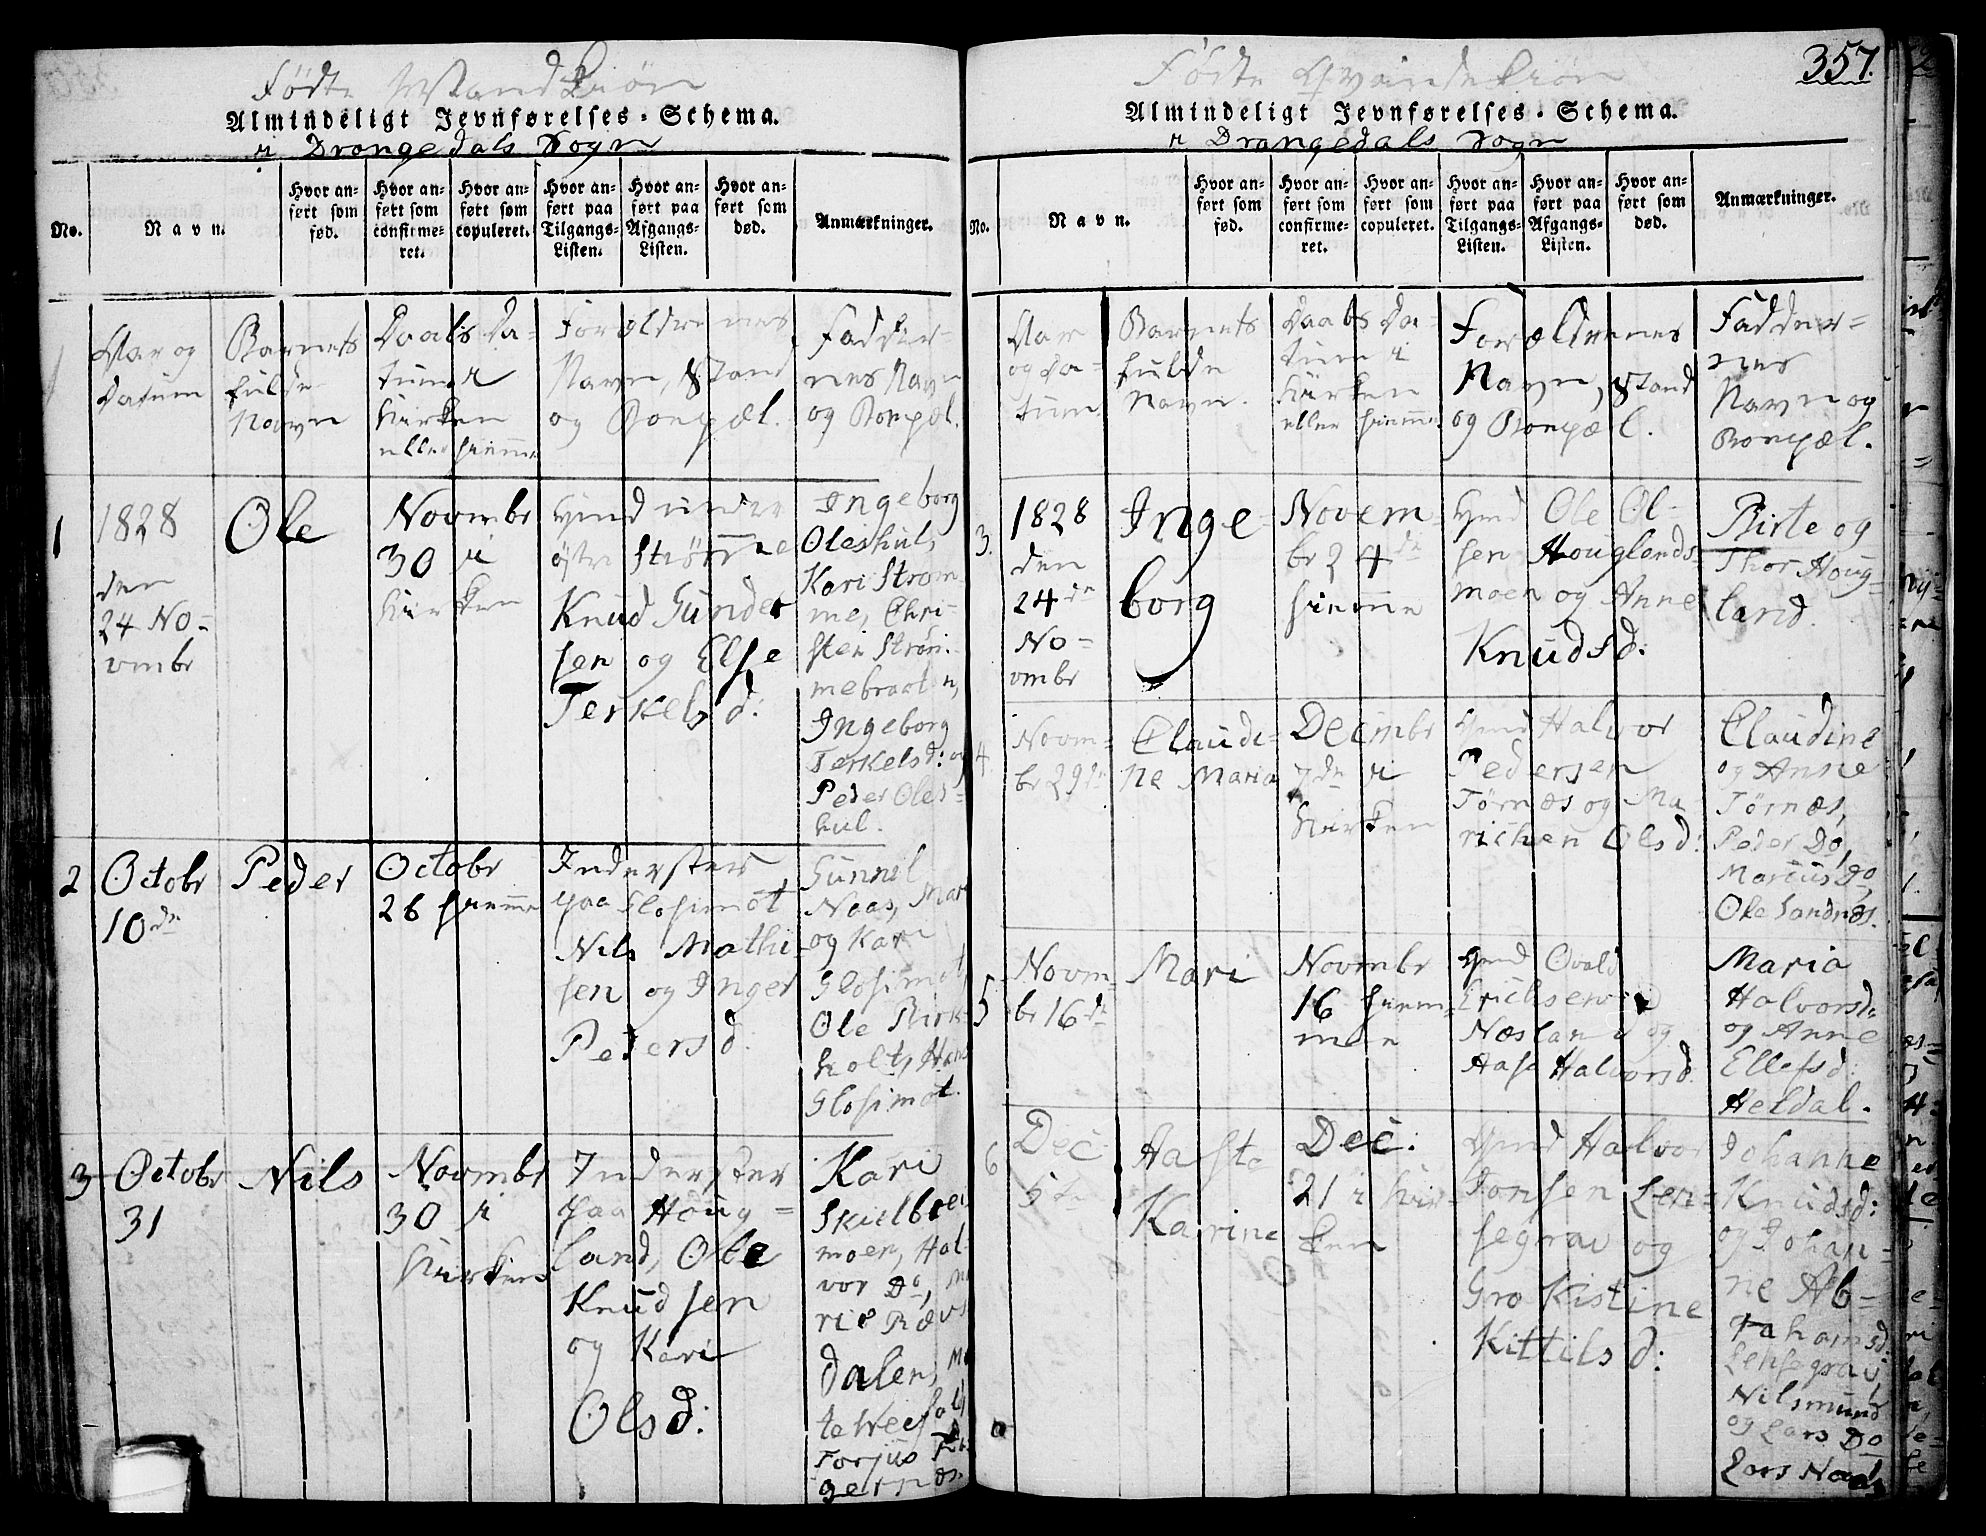 Fødte Mandkiøn
Almindeligt Jevnførelses-Schema.
i Drangedals Sogn
No.
Navn.
Hvor anført som født.
Hvor anført som confirmeret.
Hvor anført som copuleret.
Hvor anført paa Tilgangs-Listen.
Hvor anført paa Afgangs-Listen.
Hvor anført som død.
Anmærkninger.
Aar og
Datum
Barnets
fulde
Navn
Daabs Da-
tum i
Kirken
eller hiemme
Forældrenes
Navn, Stand
og Bopæl.
Fadder-
nes Navn
og Bopæl.
1
1828
den
24 No-
vmbr
Ole
Novmbr
30 i
Kirken
østre Strømme
Knud Gunder
sen og Else
Terkelsd:
Ingeborg
Oleshul,
Kari Strøm
me, Chri-
sten Strøm-
mebraaten,
Ingeborg
Terkelsd: og
Peder Oles-
hul.
2
Octobr
10de
Peder
Octobr
26 hiemme
Inderster
paa Glosimot
Nils Mathi-
sen og Inger
Pedersd.
Gunnil
Naas, Mari
og Kari
Glosimot,
Ole Birk-
holt, Hans
Glosimot.
3
Octobr
31
Nils
Novmbr
30 i
Kirken
Inderster
paa Houg-
land, Ole
Knudsen
og Kari
Olsd:
Kari
moen, Hal-
vor Do,
dalen,
Torjus
gernæs.
357.
Fødte Qvindekiøn
Almindeligt Jevnførelses-Schema.
i Drangedals Sogn
No.
Navn.
Hvor anført som fød.
Hvor anført som confirmeret.
Hvor anført som copuleret.
Hvor anført paa Tilgangs-Listen.
Hvor anført paa Afgangs-Listen.
Hvor anført som død.
Anmærkninger.
Aar
og Da-
tum
Barnets
fulde
Navn.
Daabs Da-
tum i
Kirken
eller hiemme
Forældrenes
Navn, Stand
og Bopæl.
Fadder-
nes
Navn og
Bopæl.
3.
1828
den
24de
No-
vmbr
Inge-
borg
Novem-
br 24de
hiemme
Gmd Ole Ol-
sen Houglands-
moen og Anne
Knudsd:
Birte og
Thor Houg-
land.
4
Novm-
br 29de
Claudi-
ne Maria
Decmbr
7de i
Kirken
Gmd Halvor
Pedersen
Tørnæs og Ma
richen Olsd:
Claudine
og Anne
Tørnæs,
Peder Do,
Marcus Do,
Ole Sandnæs.
5
Novm-
br 16de
Mari
Novmbr
16 hiem-
men
Gmd Ovald
Erichsen
Næsland og
Aase Halvorsd.
Maria
Halvorsd.
og Anne
Ellefsd.
Heldal.
6
Dec
5te
Aaste
Karine
Dec.
21 i Kir-
ken
Gmd Halvor
Jonsen Len-
segrav og
Gro Kistine
Kittilsd:
Johanne
Knudsd:
og Johan-
ne Ab-
rahamsd.
Lensegrav,
Nilsmund
og Lars Do
Lars Naas